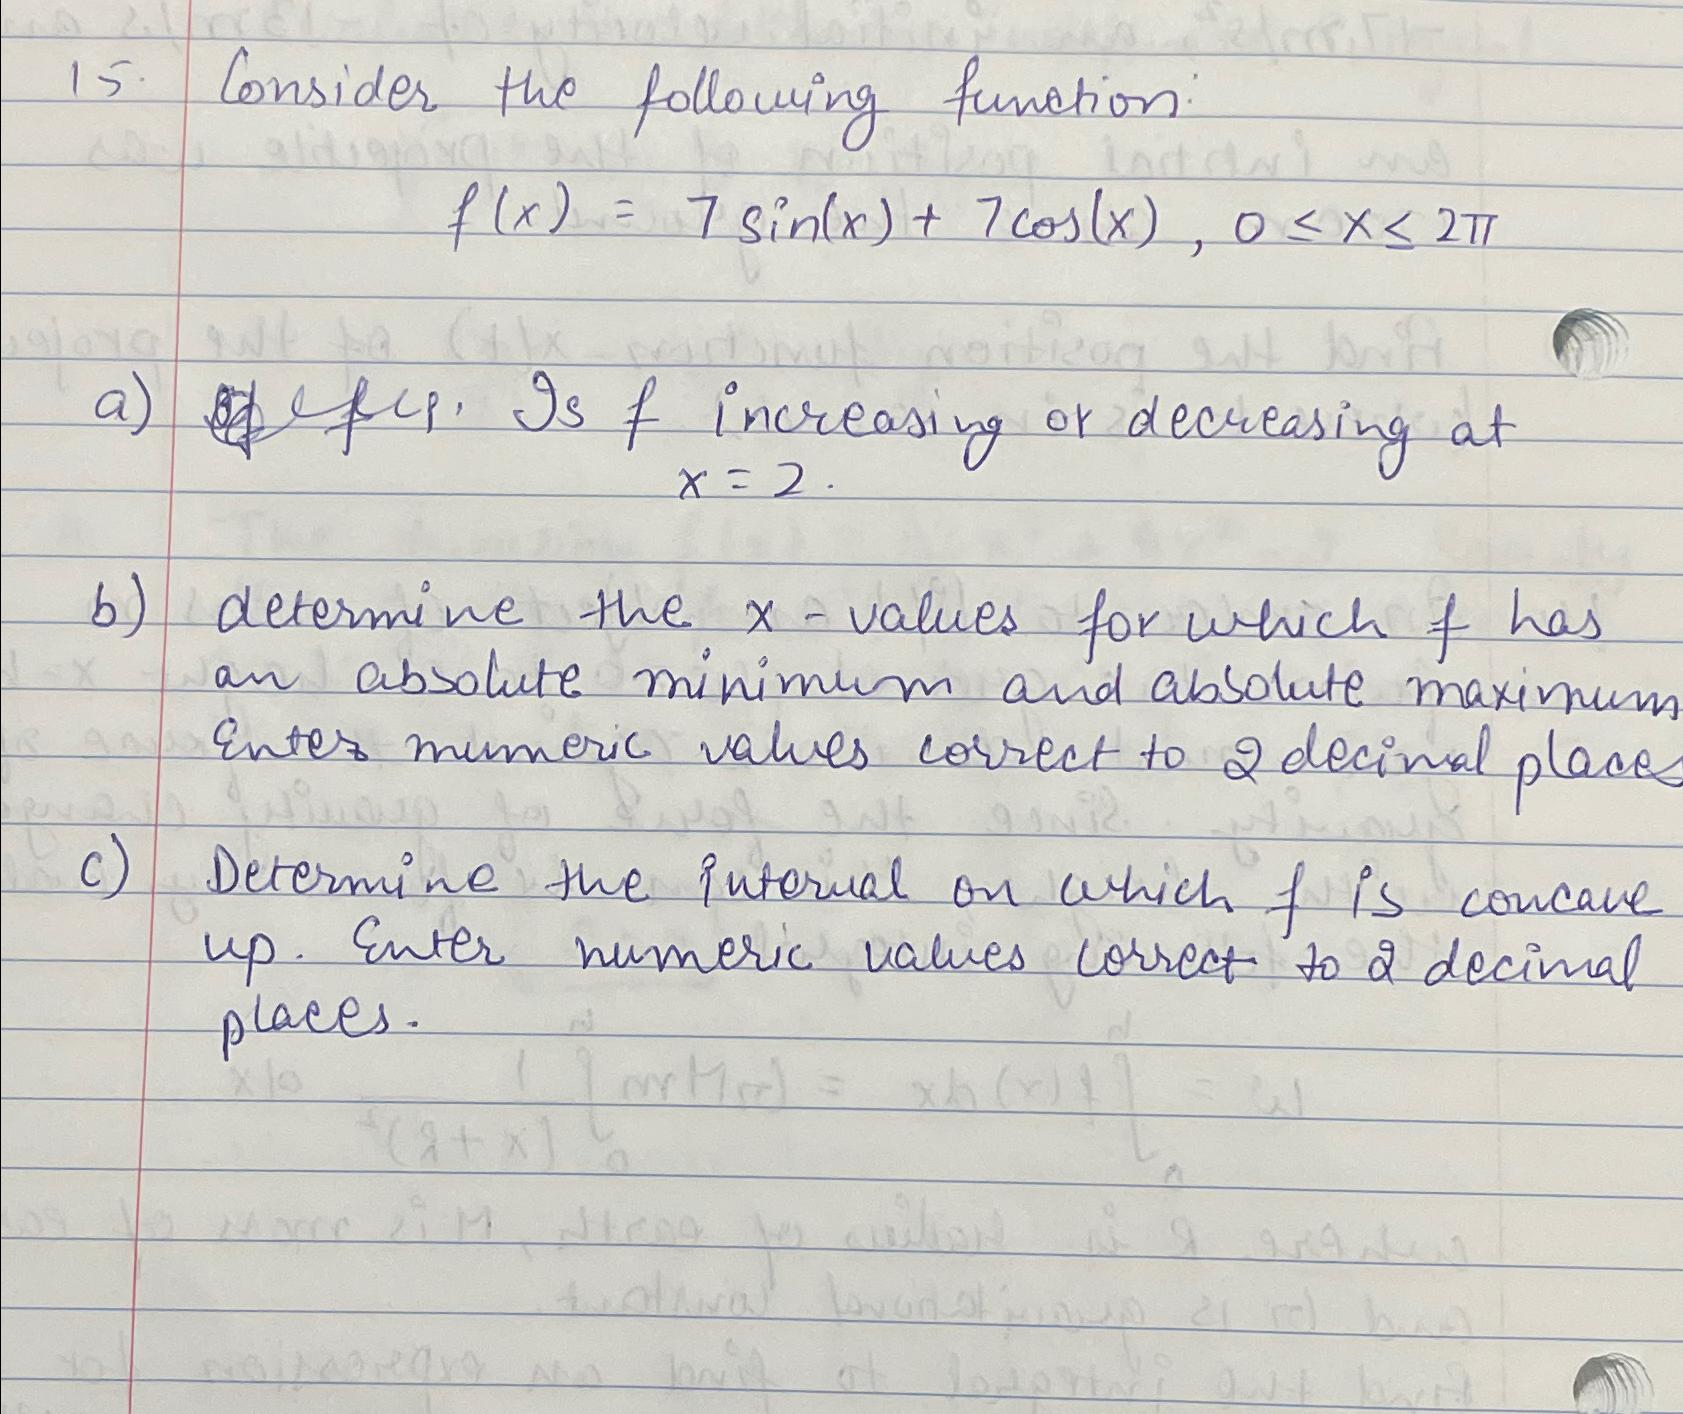 15. Consider the following function:
f(x) = 7 sin(x) + 7 cos(x), 0 ≤ x ≤ 2π
a) Is f increasing or decreasing at
x = 2.
b) determine the x - values for which f has
an absolute minimum and absolute maximum
Enter numeric values correct to 2 decimal places
c) Determine the interval on which f is concave
up. Enter numeric values correct to 2 decimal
places.